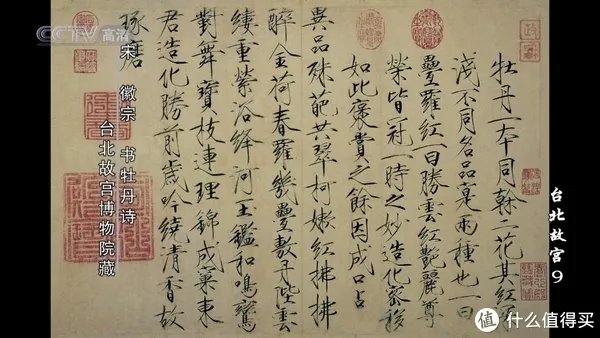 CCTV 高清
牡丹一本同榦二花其紅深
淺不同名品寔兩種也一曰
疊羅紅一曰勝雲紅艷麗尊
榮皆冠一時之妙造化密移
如此褒賞之餘因成口占
異品殊葩共翠柯嫩紅拂拂
醉金荷春羅幾疊敷丹陛雲
縷重縈浴絳河玉鑑和鳴鸞
對舞寶枝連理錦成窠東
君造化勝前歲吟繞清香故
琢磨
宋 徽宗 书牡丹诗
台北故宫博物院藏
台北故宫 9
值 什么值得买